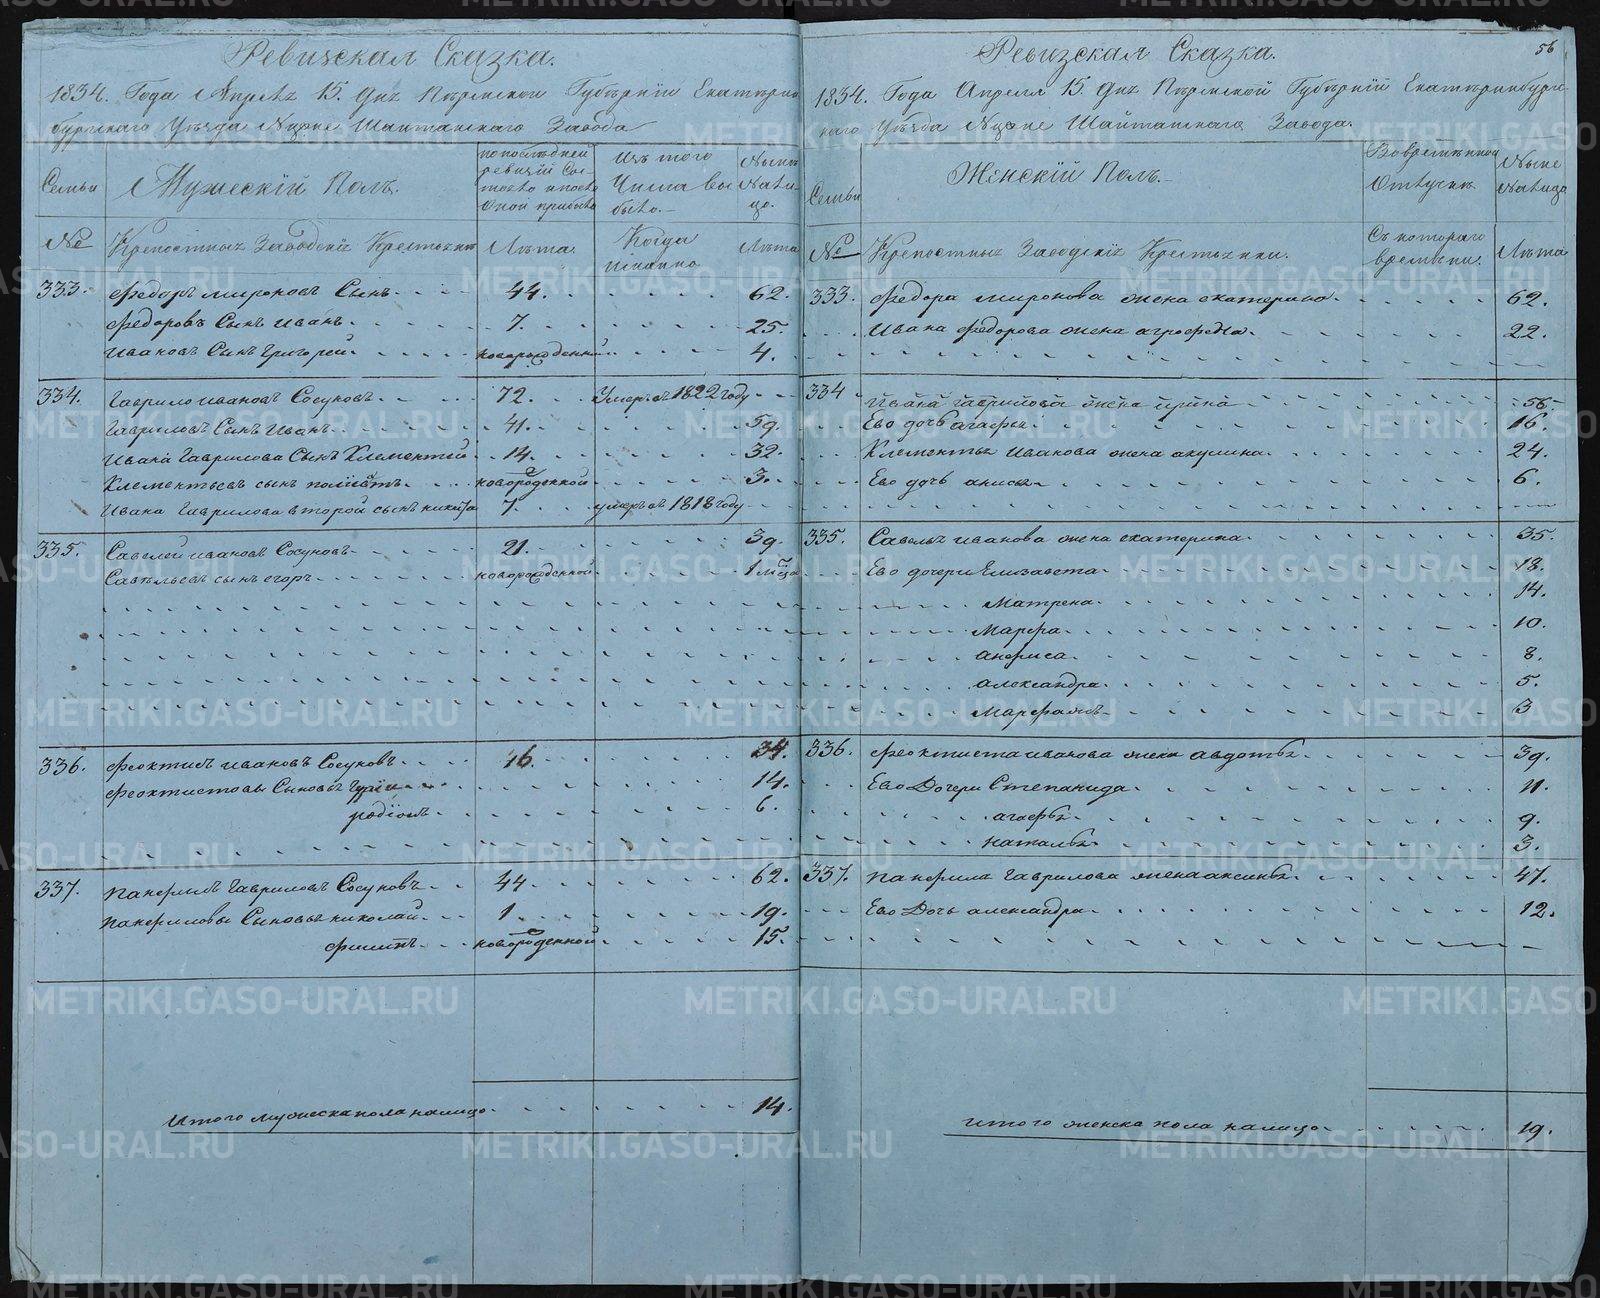 Ревизская Сказка.
1834. Года Апреля 15. дня Пермской Губернiи Екатерин
бургскаго Уѣзда Шайтанскаго Завода
Семьи
Мужескiй Полъ.
по последней
ревизiи Сос-
тояло и после
оной прибыло
Изъ того
Числа вы
было.
Нынѣ
Нали-
цо.
№
Крепостныя Заводскiе Крестьяне
Лѣта.
Когда
имянно
Лѣта
333. Федоръ мироновъ Сынъ 44. 62.
Федоровъ Сынъ Иванъ 7. 25.
Ивановъ Сынъ Григорей новорожденной 4.
334. Гаврило ивановъ Сосуновъ 72. Умеръ въ 1822 году
Гавриловъ Сынъ Иванъ 41. 59.
Ивана Гаврилова Сынъ Клементей 14. 32.
Клементьевъ сынъ новороденной 3.
Ивана Гаврилова второй сынъ никита 7. умеръ въ 1818 году
335. Савелей ивановъ Сосуновъ 21. 39.
Савельевъ сынъ егоръ новорожденной 1 мсца
336. Феоктистъ ивановъ Сосуновъ 16. 34.
Феоктистовы Сыновья 14.
родiонъ 6.
337. Панфилъ Гавриловъ Сосуновъ 44 62.
Панфиловы Сыновья николай 1 19.
филипъ новороденной 15.
Итого мужеска пола налицо 14.
56
Ревизская Сказка.
1834. Года Апреля 15. дня Пермской Губернiй Екатеринбург-
скаго Уѣзда Шайтанскаго Завода.
Семьи
Женскiй Полъ.
Во временной
Отлучкѣ
Ныне
Налицо
№
Крепостныя Заводскiя Крестьянки.
Съ котораго
времени.
Лѣта
333. Федора миронова жена екатерина 62.
Ивана федорова жена агрофена 22.
334 Ивана гаврилова жена ирина 56
Ево дочь агафья 16.
Клементья Иванова жена акулина 24.
Ево дочь анисья 6.
335. Савелья иванова жена екатерина 35.
Ево дочери Елизавета 18.
Матрена 14.
Марфа 10.
анфиса 8.
александра 5.
Марфа жъ 3
336. Феоктиста иванова жена Авдотья 39.
Ево Дочери Степанида 11.
агафья 9.
наталья 3.
337. Панфила Гаврилова жена аксинья 47.
Ево Дочь александра 12.
Итого женска пола налицо 19.
METRIKI.GASO-URAL.RU